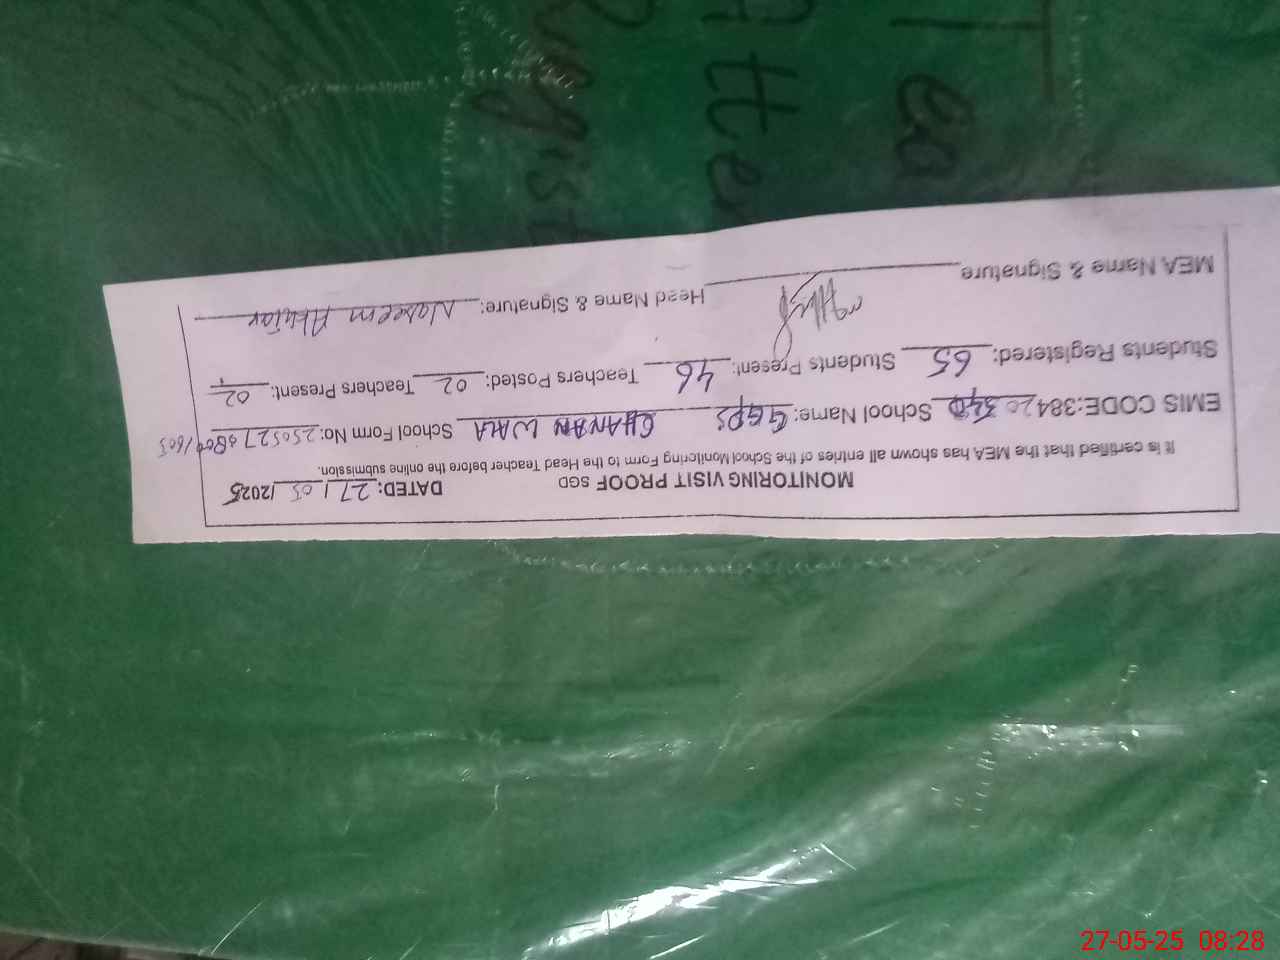 MONITORING VISIT PROOF SGD DATED: 27/05/2025
It is certified that the MEA has shown all entries of the School Monitoring Form to the Head Teacher before the online submission.
EMIS CODE:38420340 School Name: GGPS CHANAN WALA School Form No: 250527
Students Registered: 65 Students Present: 46 Teachers Posted: 02 Teachers Present: 02
MEA Name & Signature Head Name & Signature: Naseem Akhtar
27-05-25 08:28